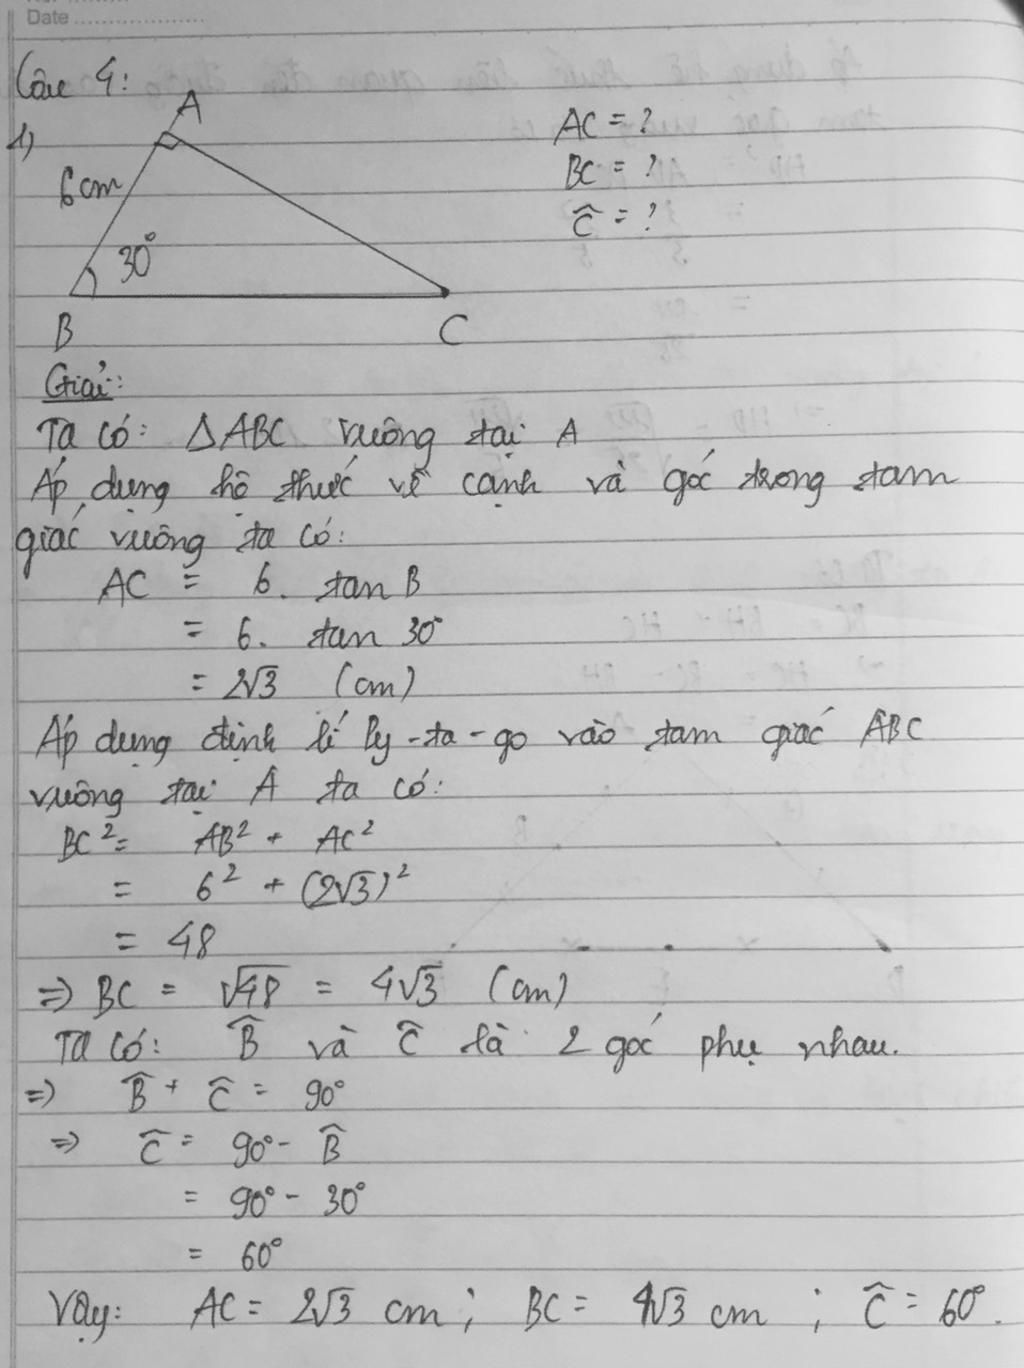 Date
Câu 4:
1)
A
6cm
30°
B
C
AC = ?
BC = ?
Ĉ = ?
Giải:
Ta có: ΔABC vuông tại A
Áp dụng hệ thức về cạnh và góc trong tam
giác vuông ta có:
AC = 6. tan B
= 6. tan 30°
= 2√3 (cm)
Áp dụng định lí Py-ta-go vào tam giác ABC
vuông tại A ta có:
BC² = AB² + AC²
= 6² + (2√3)²
= 48
⇒ BC = √48 = 4√3 (cm)
Ta có: B̂ và Ĉ là 2 góc phụ nhau.
⇒ B̂ + Ĉ = 90°
⇒ Ĉ = 90° - B̂
= 90° - 30°
= 60°
Vậy: AC = 2√3 cm ; BC = 4√3 cm ; Ĉ = 60°.